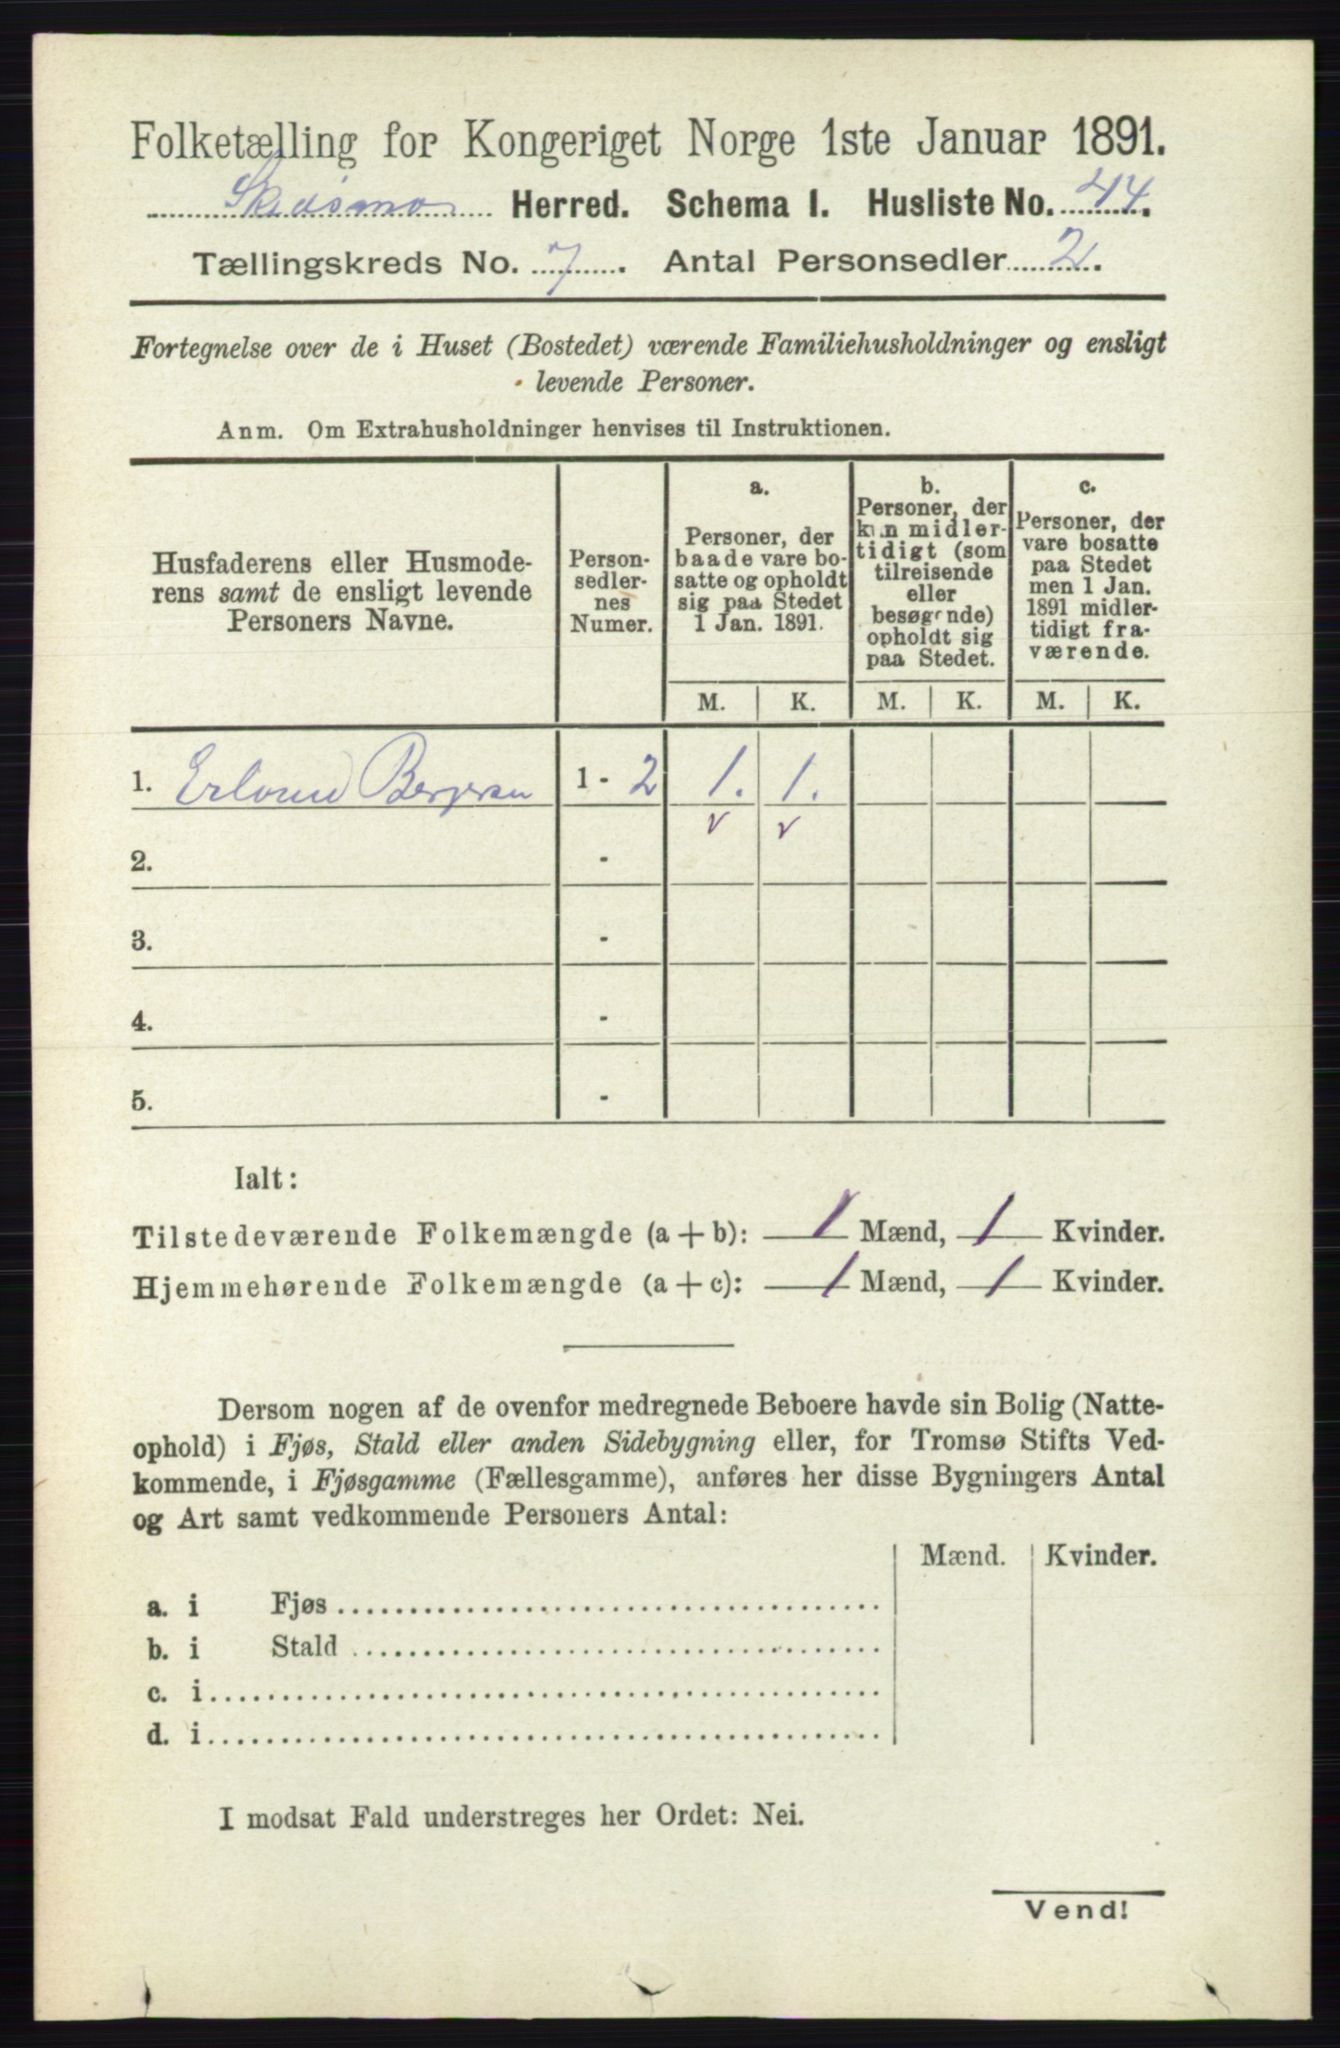 Folketælling for Kongeriget Norge 1ste Januar 1891.
Skedsmo Herred. Schema I. Husliste No. 44.
Tællingskreds No. 7. Antal Personsedler 2.
Fortegnelse over de i Huset (Bostedet) værende Familiehusholdninger og ensligt
levende Personer.
Anm. Om Extrahusholdninger henvises til Instruktionen.
Husfaderens eller Husmode-
rens samt de ensligt levende
Personers Navne.
Person-
sedler-
nes
Numer.
a.
Personer, der
baade vare bo-
satte og opholdt
sig paa Stedet
1 Jan. 1891.
b.
Personer, der
kun midler-
tidigt (som
tilreisende
eller
besøgende)
opholdt sig
paa Stedet.
c.
Personer, der
vare bosatte
paa Stedet
men 1 Jan.
1891 midler-
tidigt fra-
værende.
M. K. M. K. M. K.
1. Erland Bergersen 1 - 2 1. 1.
v v
2. -
3. -
4. -
5. -
Ialt:
Tilstedeværende Folkemængde (a + b): 1 Mænd, 1 Kvinder.
Hjemmehørende Folkemængde (a + c): 1 Mænd, 1 Kvinder.
Dersom nogen af de ovenfor medregnede Beboere havde sin Bolig (Natte-
ophold) i Fjøs, Stald eller anden Sidebygning eller, for Tromsø Stifts Ved-
kommende, i Fjøsgamme (Fællesgamme), anføres her disse Bygningers Antal
og Art samt vedkommende Personers Antal:
Mænd. Kvinder.
a. i Fjøs
b. i Stald
c. i
d. i
I modsat Fald understreges her Ordet: Nei.
Vend!